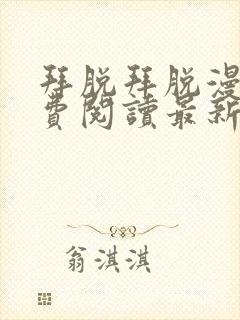 拜脱拜脱漫
费阅讀最新
翁淇淇